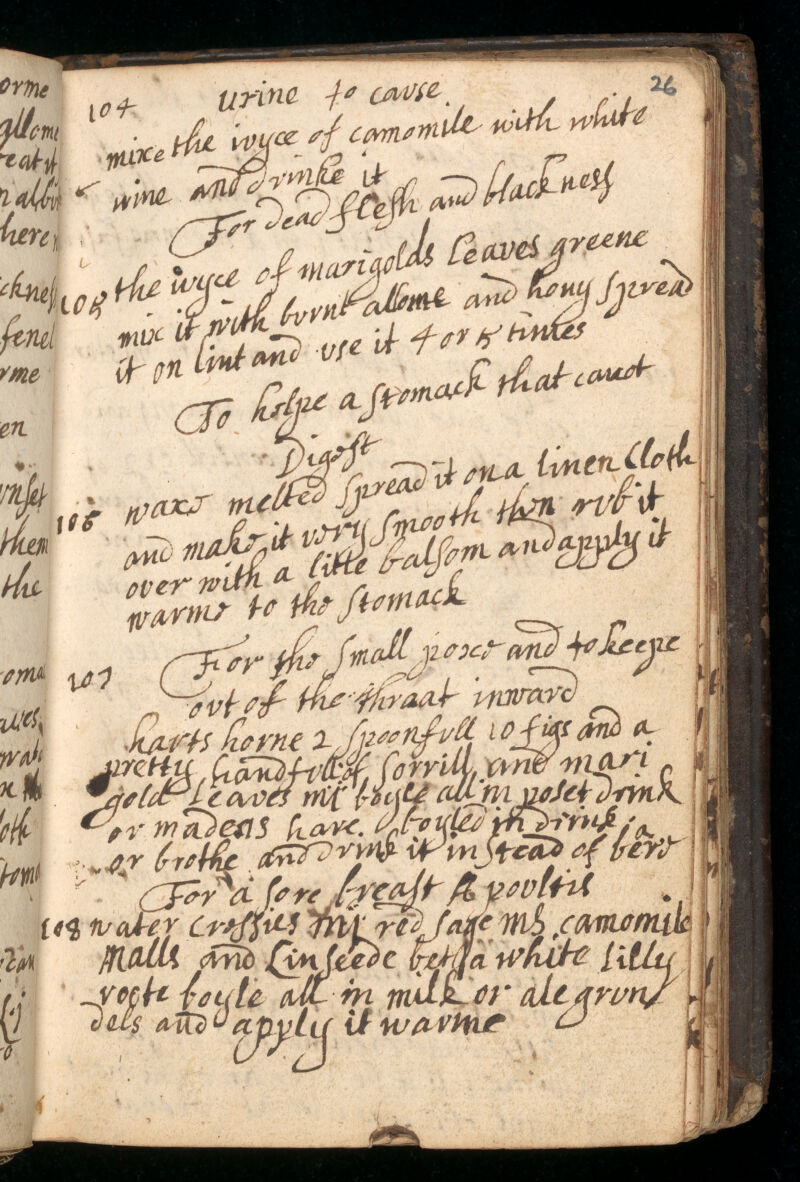 26
104 urine to cause
mixe the iuyce of camomile with white
wine and drinke it
For dead flesh and blackness
105 the iuyce of marigolds Leaves greene
mix it with burnt allome and hony spread
it on lint and use it 4 or 5 times
To helpe a stomack that canot
Digest
106 waxe melted spread it on a linen Cloth
and make it very smooth then rub it
over with a litte balsom and apply it
warme to the stomack
107 For the small poxe and to keepe
out of the thraat inward
harts horne 2 spoonfull 10 figs and a
pretty handfull of sorrill and mari
gold Leaves boyle all in poset drink
or madens hare boyled in drink
or brothe and drink it instead of bere
For a sore breast A poultis
108 water Cressies red sage camomile
Malls and Linseede a white lilly
roote boyle all in milk or ale grun
dels and apply it warme